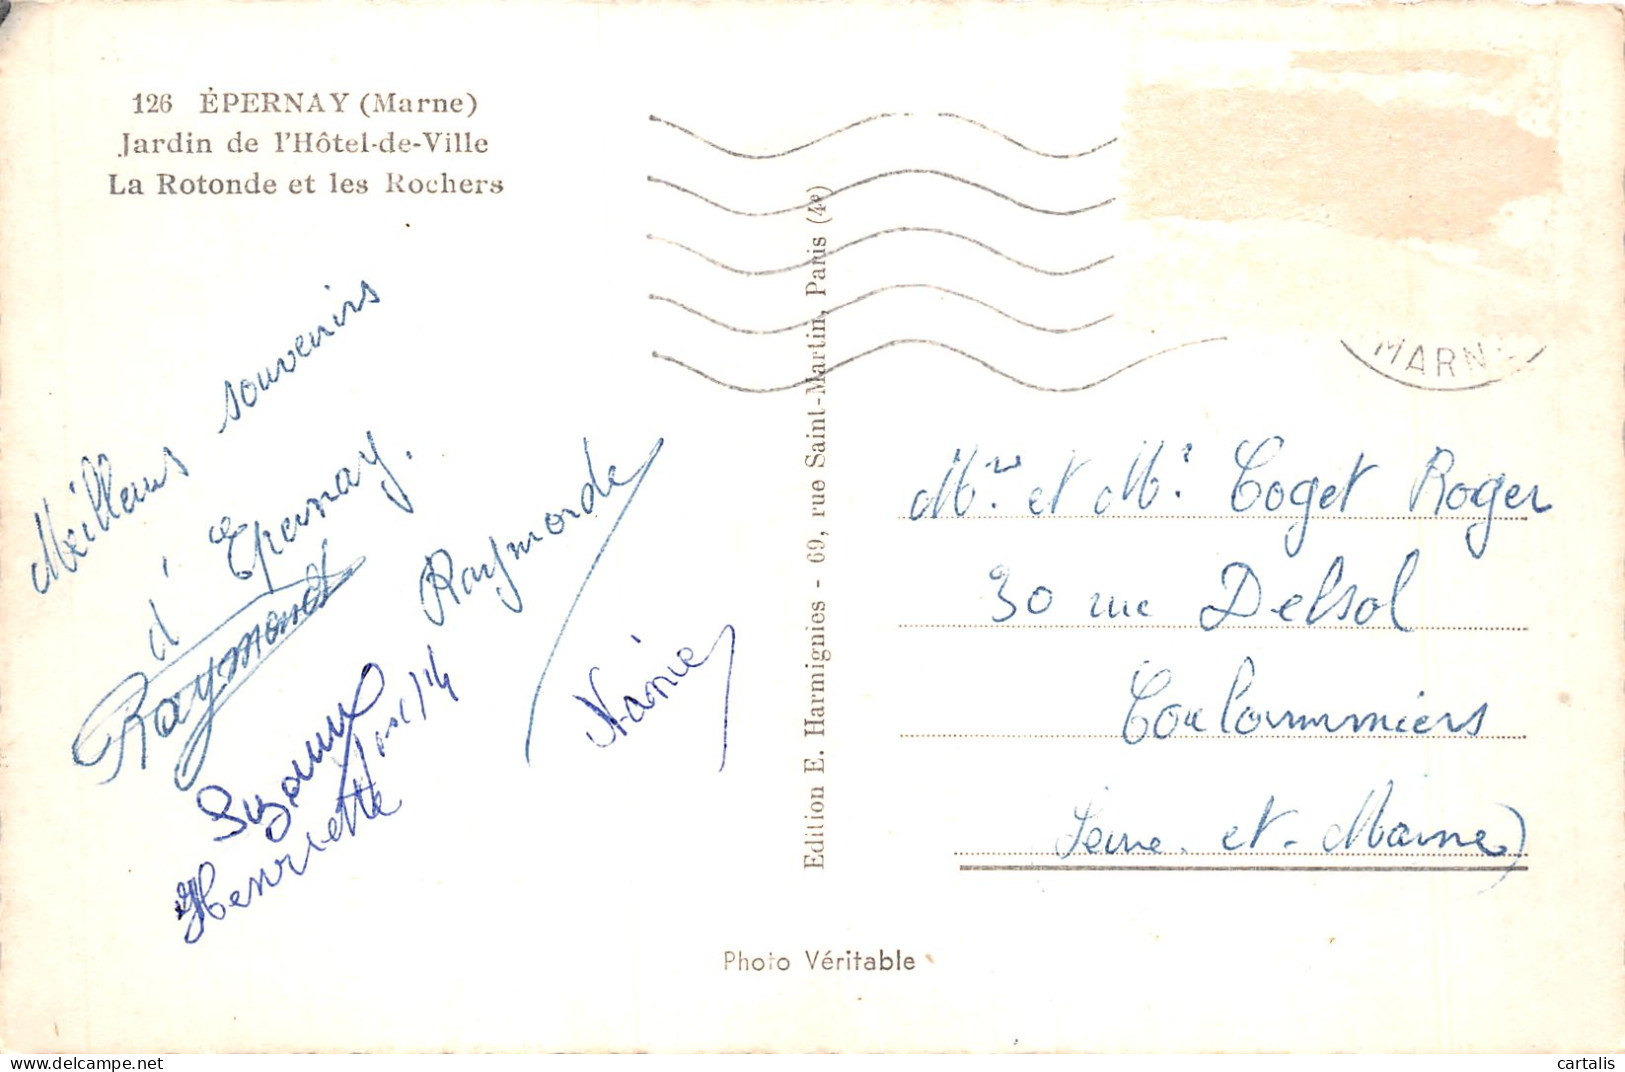 126 ÉPERNAY (Marne)
Jardin de l'Hôtel-de-Ville
La Rotonde et les Rochers
Meilleurs souvenirs
d'Epernay.
Raymond
Raymonde
Suzanne
Henriette
Edition E. Harmignies - 69, rue Saint-Martin, Paris (4e)
MARNE
Mme et Mr. Coget Roger
30 rue Delsol
Coulommiers
Seine-et-Marne)
Photo Véritable
cartalis